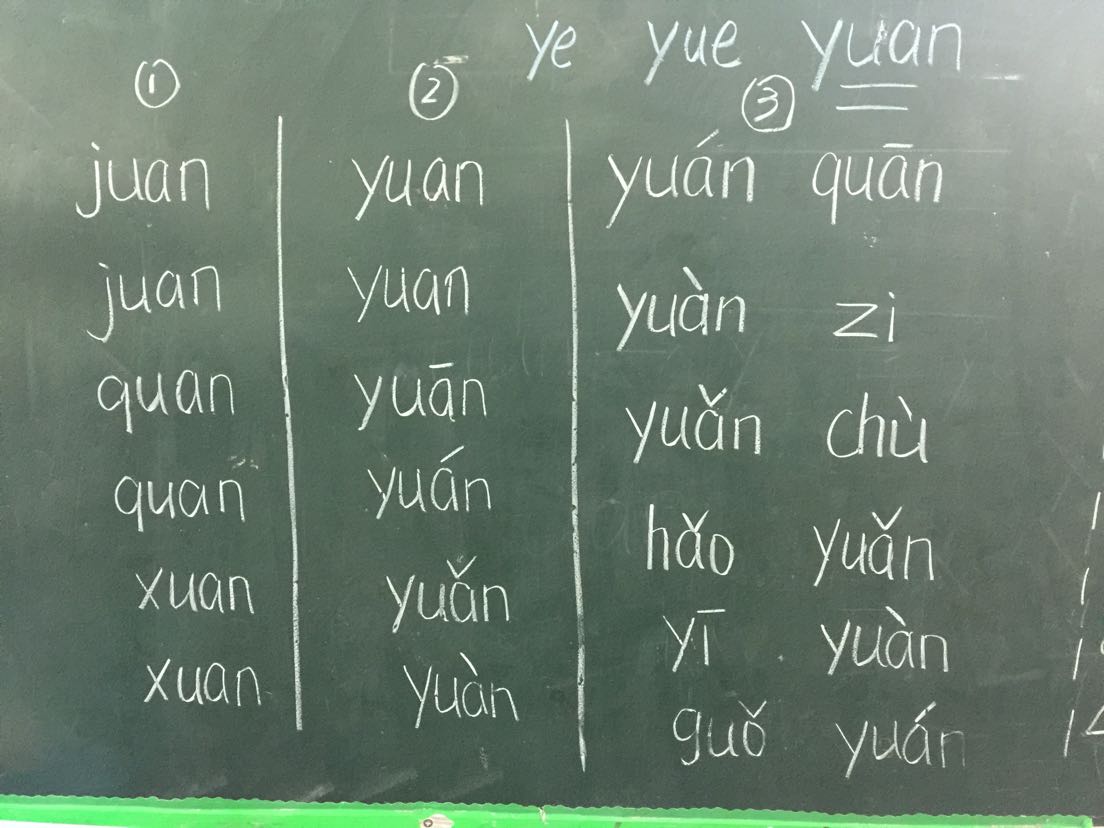 ye yue yuan
① ② ③
juan yuan yuán quān
juan yuan yuàn zi
quan yuān yuǎn chù
quan yuán hǎo yuǎn
xuan yuǎn yī yuàn
xuan yuàn guǒ yuán